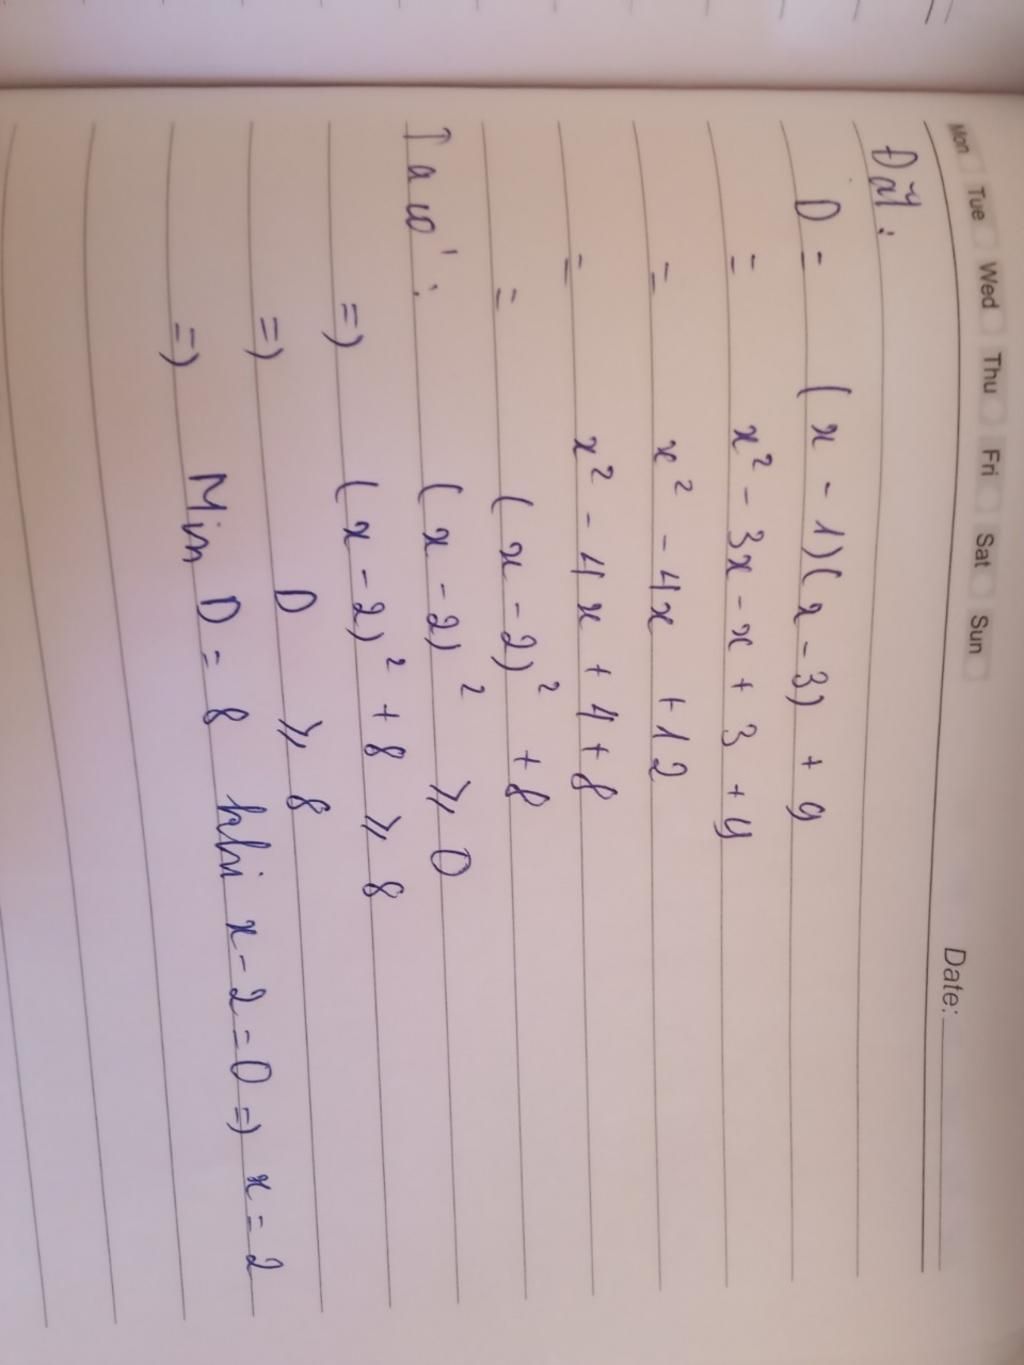 Mon Tue Wed Thu Fri Sat Sun
Date:
Đặt:
D = (x - 1)(x - 3) + 9
= x² - 3x - x + 3 + 9
= x² - 4x + 12
= x² - 4x + 4 + 8
= (x - 2)² + 8
Ta có: (x - 2)² ⩾ 0
=) (x - 2)² + 8 ⩾ 8
=) D ⩾ 8
=) Min D = 8 khi x - 2 = 0 =) x = 2